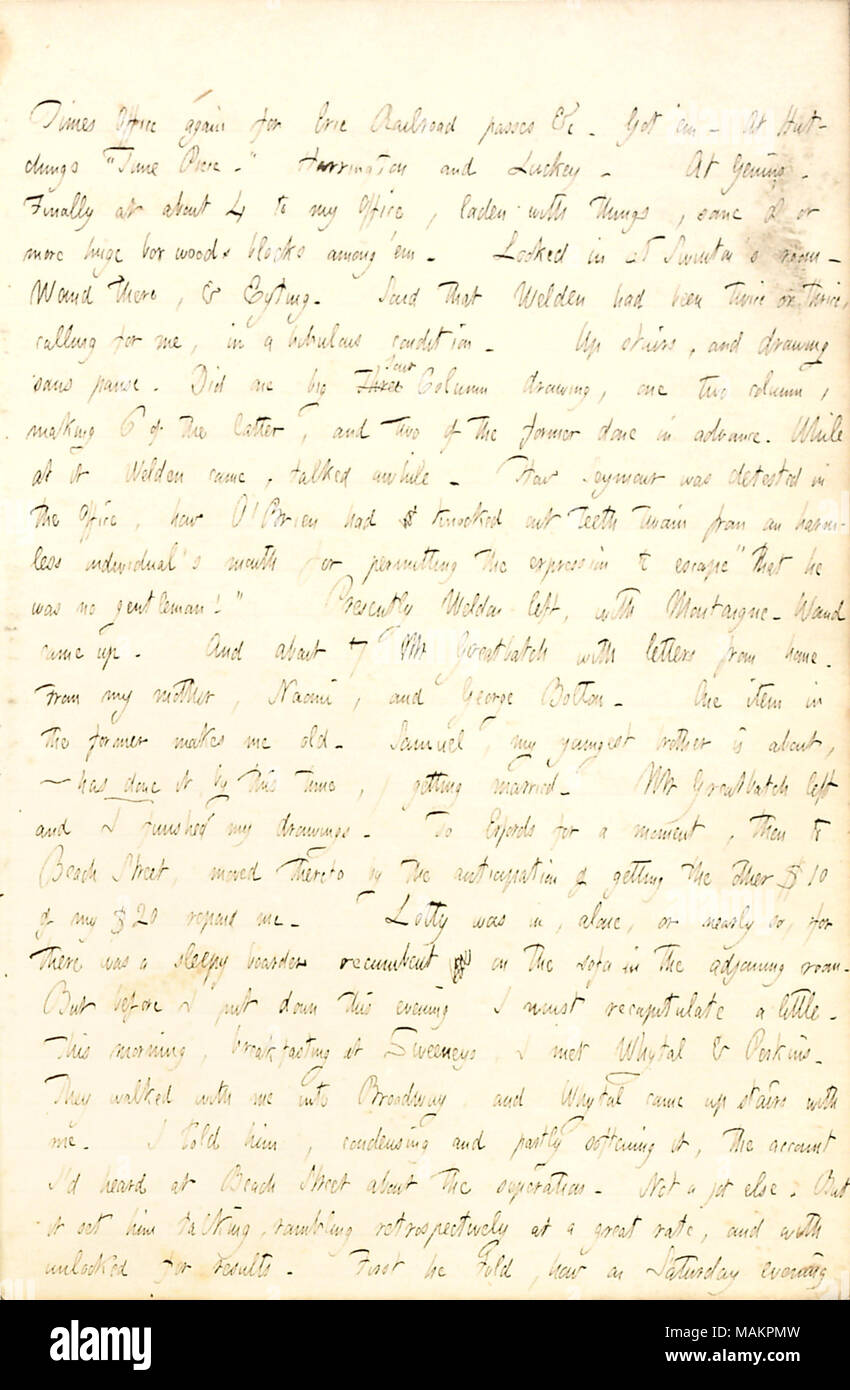 Times Office again for Erie Railroad passes &c. Got 'em. At Hut-
chings "Time Piece." Harrington and Luckey. At Genins.
Finally at about 4 to my Office, laden with things, some 8 or
more huge box wood blocks among 'em. Looked in at Swinton's room.
Waud there, & Eyting. Said that Welden had been twice or thrice,
calling for me, in a bibulous condition. Up stairs, and drawing
sans pause. Did one big Three four Column drawing, one two column,
making 6 of the latter, and two of the former done in advance. While
at it Welden came, talked awhile. How Seymour was detested in
the Office, how O'Brien had knocked out teeth twain from an harm-
less individual's mouth for permitting the expression to escape "that he
was no gentleman!" Presently Welden left, with Montaigne. Waud
came up. And about 7 Mr Greatbatch with letters from home.
From my mother, Naomi, and George Bolton. One item in
the former makes me old. Samuel, my youngest brother is about,
— has done it by this time, getting married. Mr Greatbatch left
and I finished my drawings. To Erfords for a moment, then to
Beach Street, moved thereto by the anticipation of getting the other $10
of my $20 repaid me. Lotty was in, alone, or nearly so, for
there was a sleepy boarder recumbent on the sofa in the adjoining room.
But before I put down this evening I must recapitulate a little.
This morning, breakfasting at Sweeneys, I met Whytal & Perkins.
They walked with me into Broadway and Whytal came up stairs with
me. I told him, condensing and partly softening it, the account
I'd heard at Beach Street about the seperation. Not a jot else. But
it set him talking, rambling retrospectively at a great rate, and with
unlooked for results. First he told, how on Saturday evening
alamy
Image ID: MAKPMW
www.alamy.com